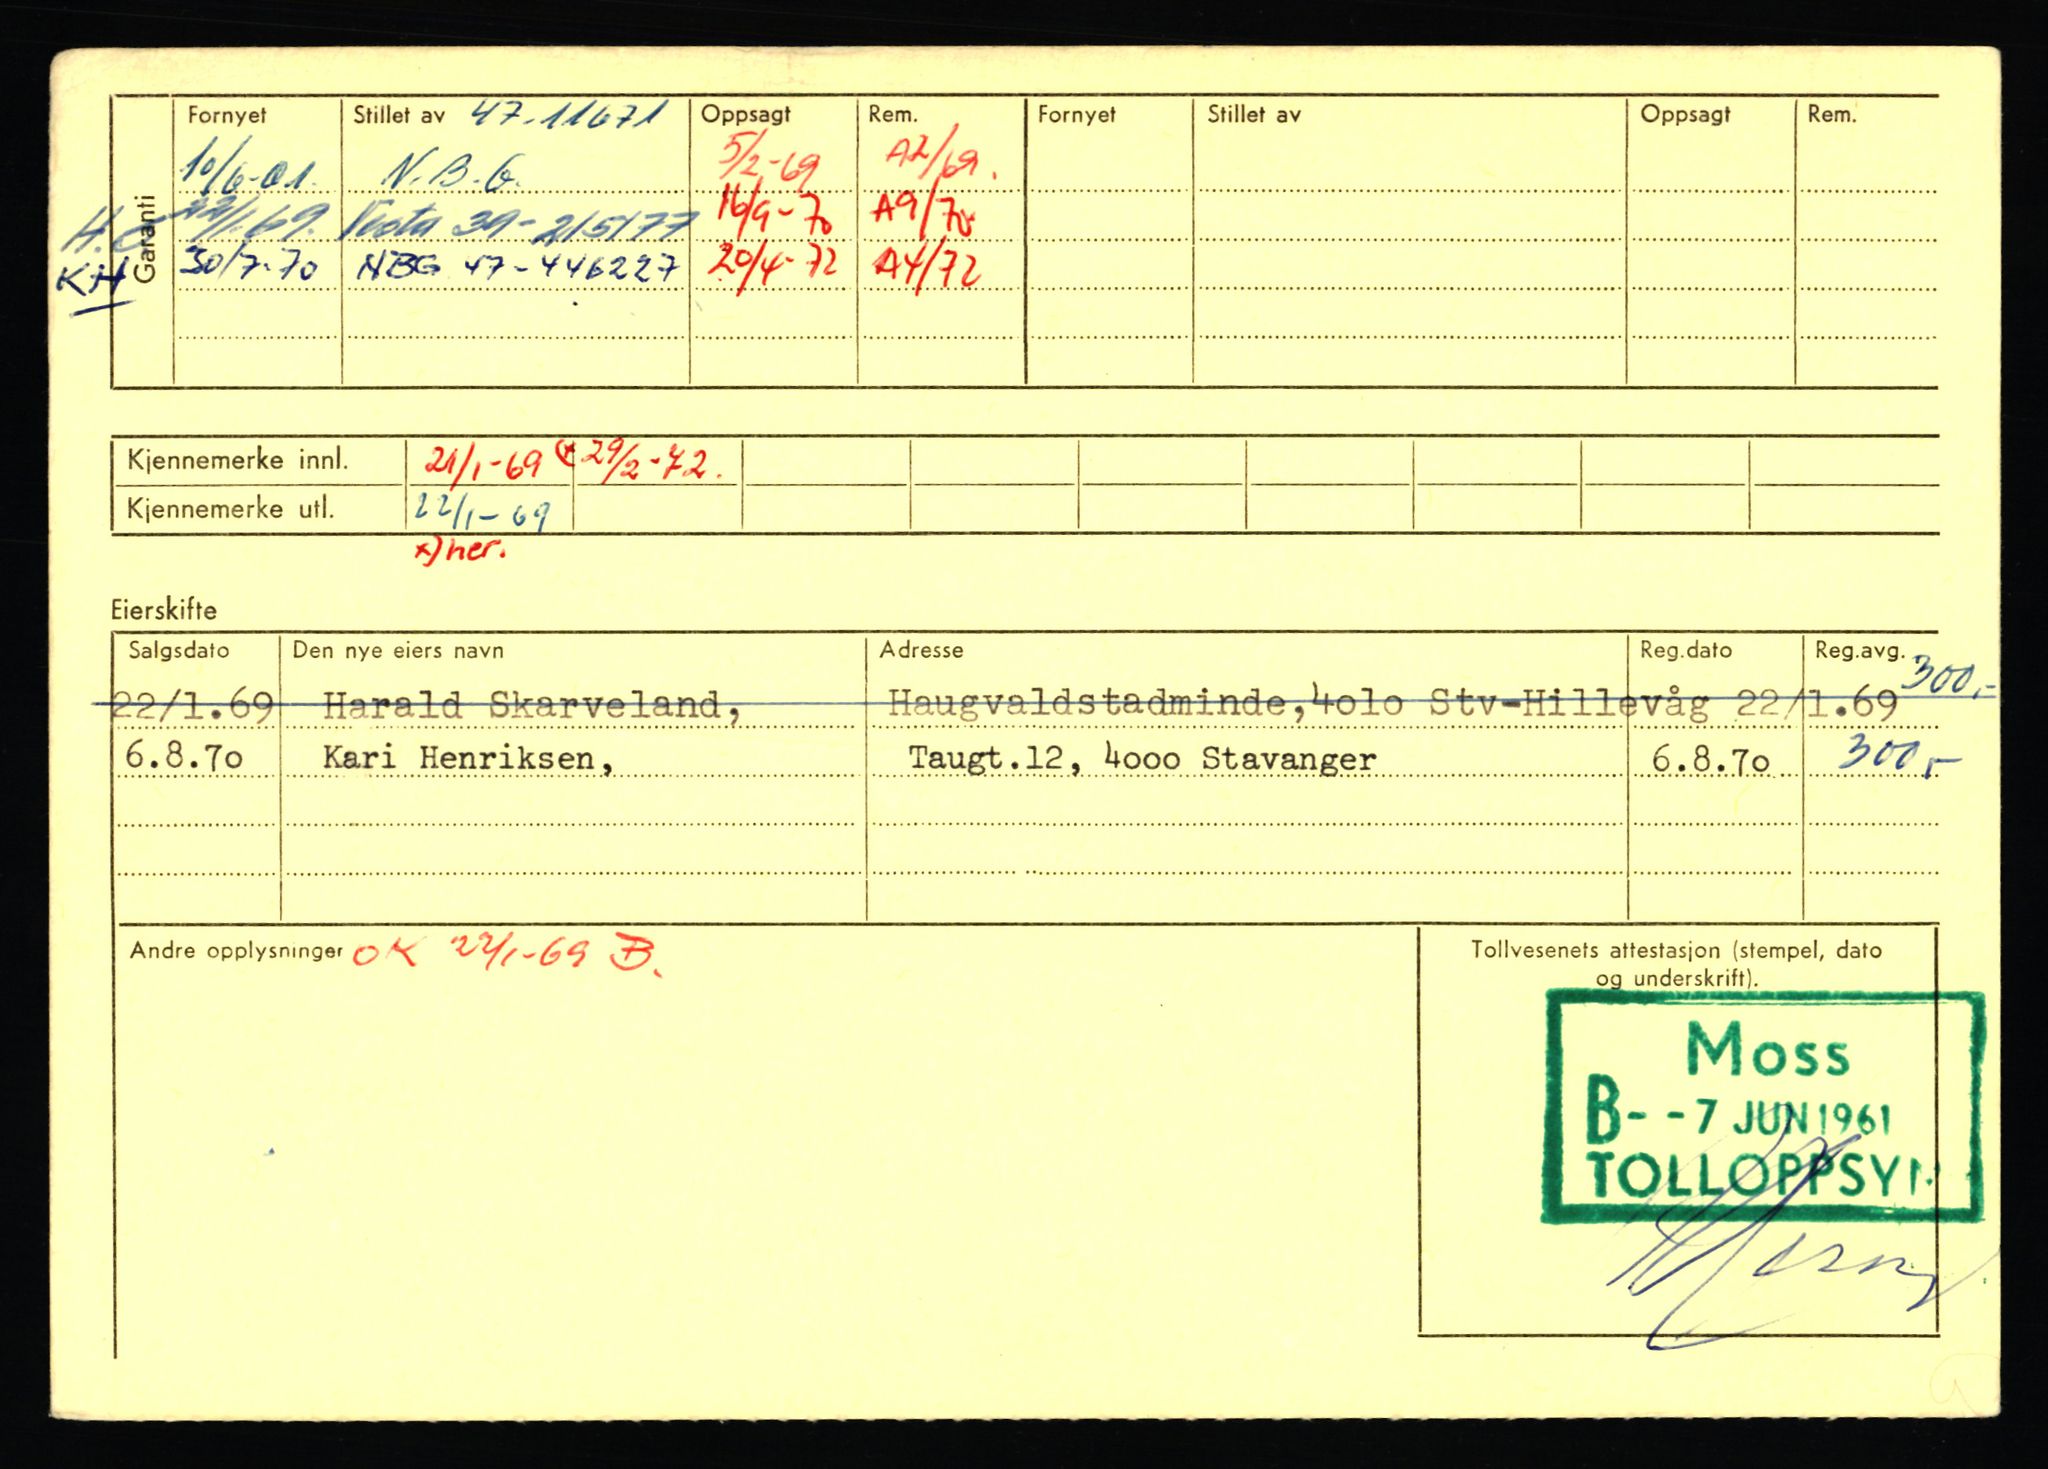 Garanti
Fornyet Stillet av 47-11671 Oppsagt Rem. Fornyet Stillet av Oppsagt Rem.
10/6-61. N.B.G. 5/2-69 A2/69.
22/1.69. Vesta 39-215177 16/9-70 A9/70
KH 30/7-70 NBG 47-446227 20/4-72 A4/72
Kjennemerke innl. 21/1-69 29/2-72.
Kjennemerke utl. 22/1-69
x) her.
Eierskifte
Salgsdato Den nye eiers navn Adresse Reg.dato Reg.avg.
22/1.69 Harald Skarveland, Haugvaldstadminde, 4olo Stv-Hillevåg 22/1.69 300,-
6.8.7o Kari Henriksen, Taugt.12, 4ooo Stavanger 6.8.7o 300,-
Andre opplysninger OK 22/1-69 B.
Tollvesenets attestasjon (stempel, dato
og underskrift).
Moss
B- -7 JUN 1961
TOLLOPPSYN